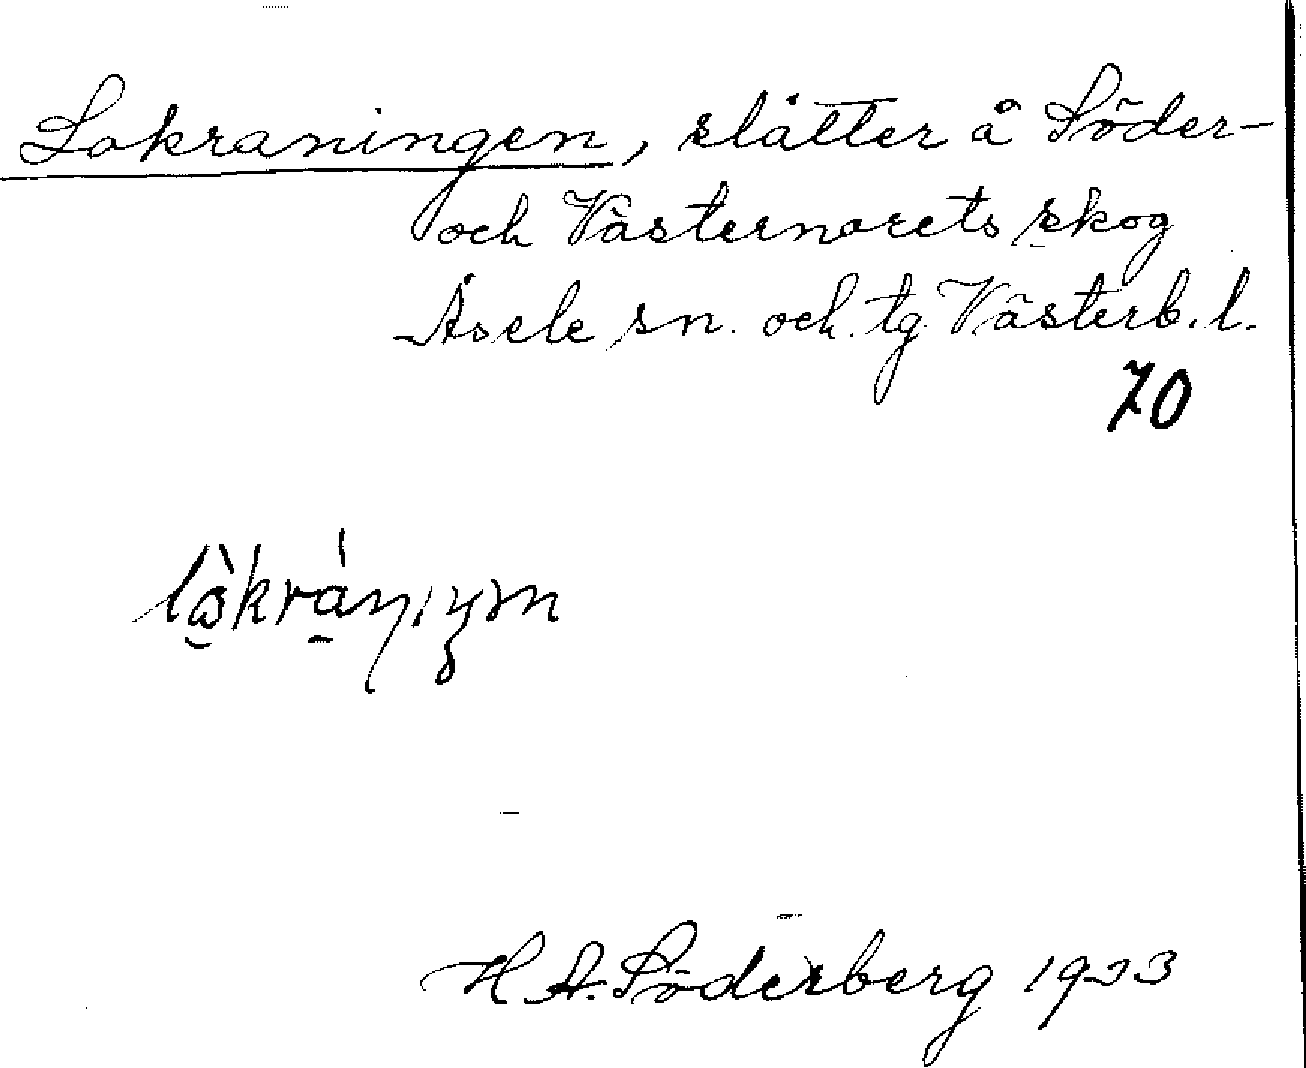 Lokraningen, slåtter å Söder-
och Västernorets skog
Åsele sn. och tg. Västerb. l.
70
H. A. Söderberg 1933